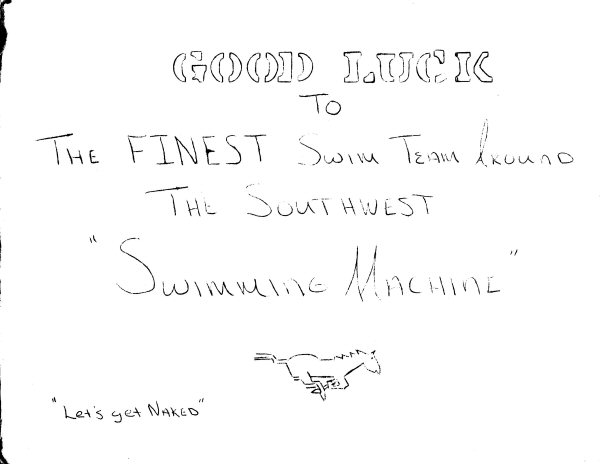 GOOD LUCK
TO
THE FINEST SWIM TEAM AROUND
THE SOUTHWEST
"SWIMMING MACHINE"
"Let's get NAKED"